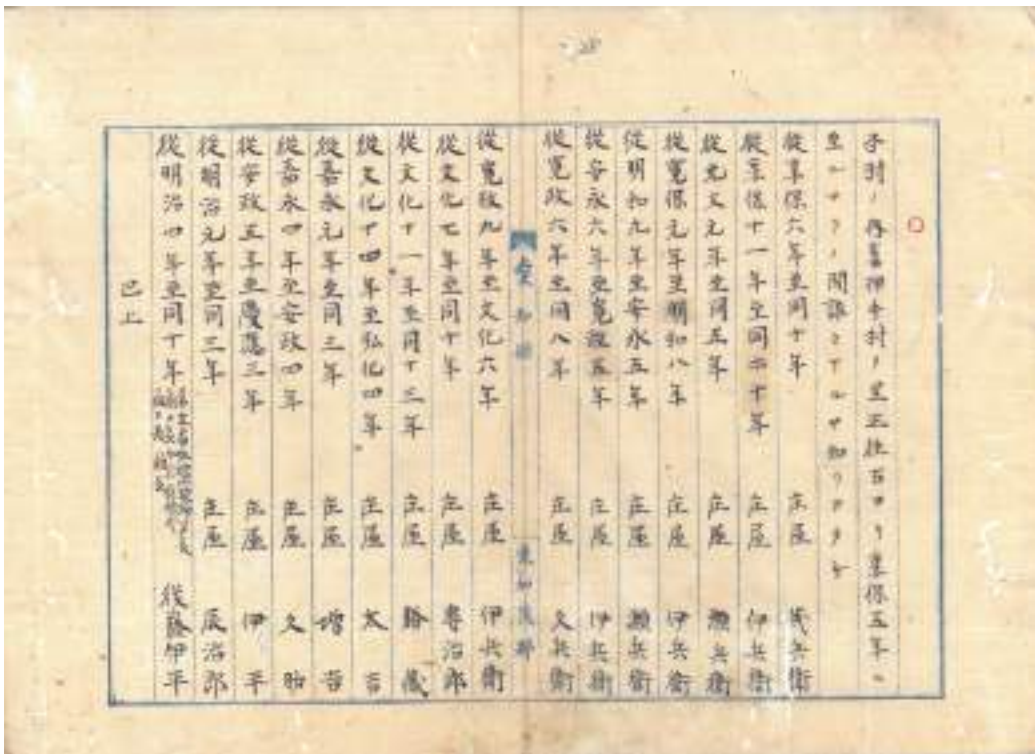 ○
至ルマテノ間誰々ナルヤ知ルアタハ
從享保六年至同十年 庄屋 茂兵衛
從享保十一年至同二十年 庄屋 伊兵衛
從元文元年至同五年 庄屋 瀬兵衛
從寛保元年至明和八年 庄屋 伊兵衛
從明和九年至安永五年 庄屋 瀬兵衛
從安永六年至寛政五年 庄屋 伊兵衛
從寛政六年至同八年 庄屋 久兵衛
愛知縣 東加茂郡
從寛政九年至文化六年 庄屋 伊兵衛
從文化七年至同十年 庄屋 専治郎
從文化十一年至同十三年 庄屋
從文化十四年至弘化四年 庄屋 太吉
從嘉永元年至同三年 庄屋 増吉
從嘉永四年至安政四年 庄屋
從安政五年至慶應三年 庄屋 伊平
從明治元年至同三年 庄屋 辰治郎
從明治四年至同十年 後藤伊平
已上